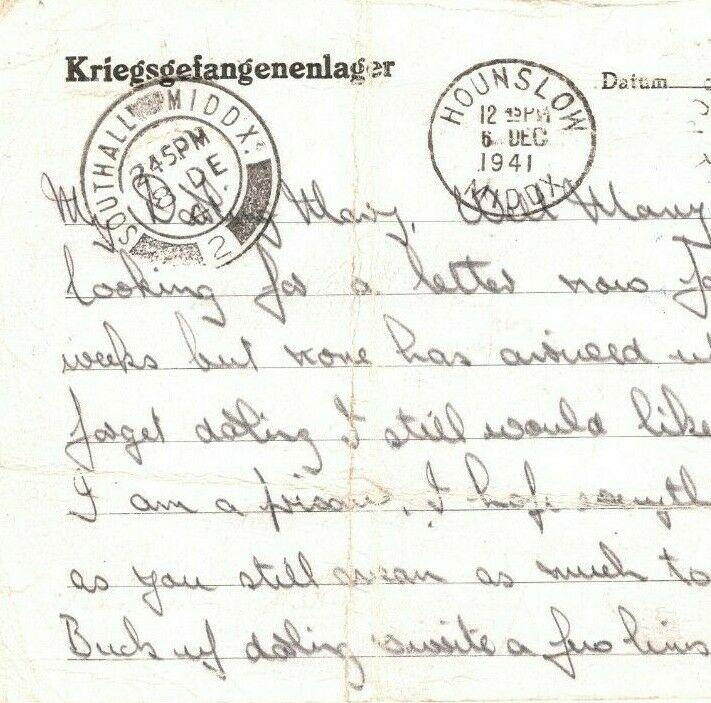 Kriegsgefangenenlager
Datum
SOUTHALL MIDDX.
2 45 PM
8 DE
41
2
HOUNSLOW
12 15 PM
6 DEC
1941
MIDDX
My Darling Mary, Well Mary
looking for a letter now fo
weeks but none has arrived
forget darling I still would like
I am a prison, I hope everyth
as you still mean as much to
Buck up darling write a few lines